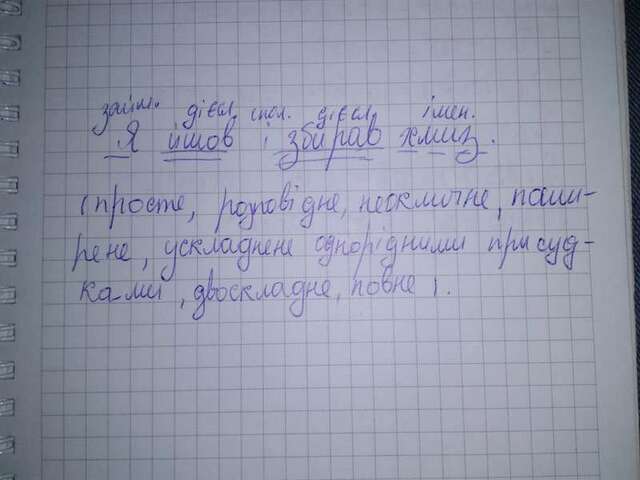 займ. дієсл. спол. дієсл. імен.
Я йшов і збирав хмиз.
(просте, розповідне, неокличне, поши-
рене, ускладнене однорідними присуд-
ками, двоскладне, повне).